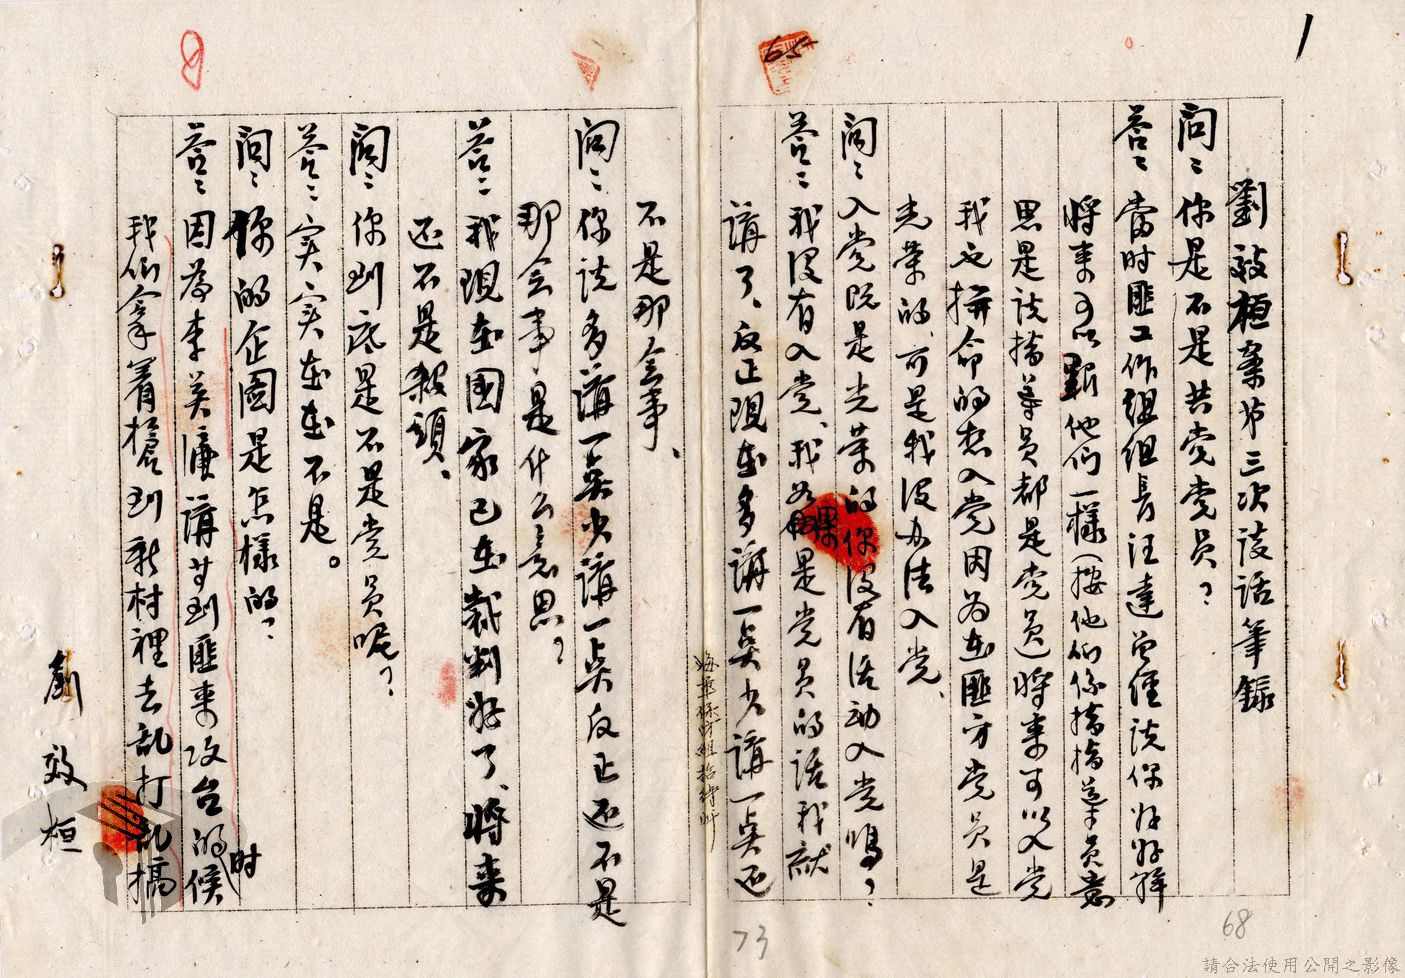 1
劉效桓案第三次談話筆錄
問：你是不是共党党員？
答：當时匪工作組組長汪達曾經説你好好幹
將来可以跟他们一樣（按他们係指指導員意
思是説指导員都是党員）將来可以入党
我也拼命的想入党因为在匪方党員是
光荣的、可是我没办法入党、
問：入党既是光荣的你没有活动入党嗎？
答：我没有入党、我如果是党員的話我就
講了、反正現在多講一点少講一点还
不是那会事、
問：你説多講一点少講一点反正还不是
那会事是什么意思？
答：我現在国家已在裁判好了、將来
还不是殺頭、
問：你到底是不是党員呢？
答：实实在在不是。
問：你的企圖是怎樣的？
答：因為李英漁講等到匪来攻台的时候
我们拿着槍到新村裡去乱打乱搞
劉效桓
65
73
68
請合法使用公開之影像